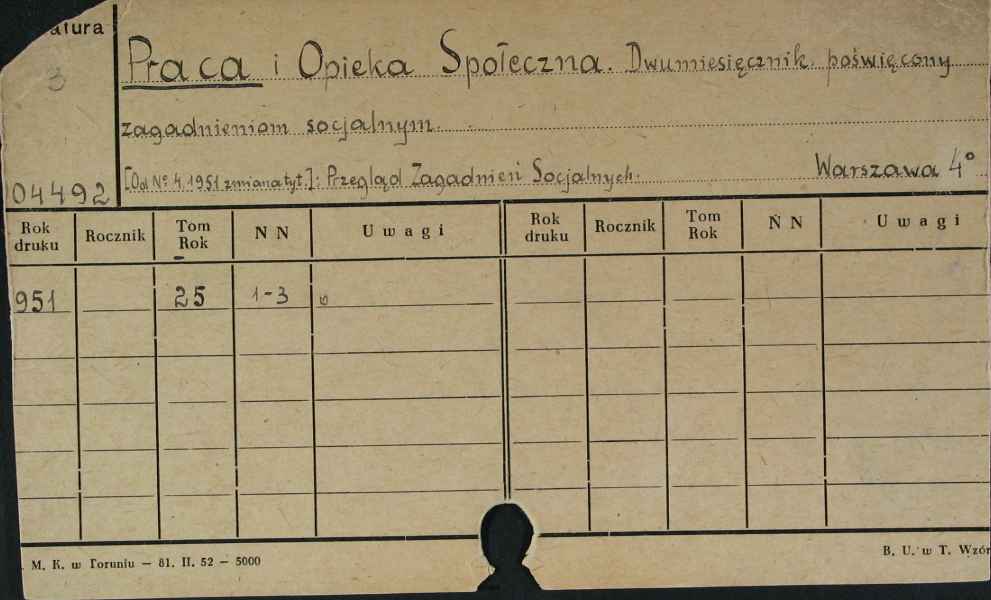 atura
3
04492
Praca i Opieka Społeczna. Dwumiesięcznik. poświęcony
zagadnieniom socjalnym.
[Od Nº 4, 1951 zmiana tyt.]: Przegląd Zagadnień Socjalnych. Warszawa 4º
Rok druku Rocznik Tom Rok N N Uwagi Rok druku Rocznik Tom Rok N N Uwagi
951 25 1-3
M. K. w Toruniu — 81. II. 52 — 5000 B. U. w T. Wzór